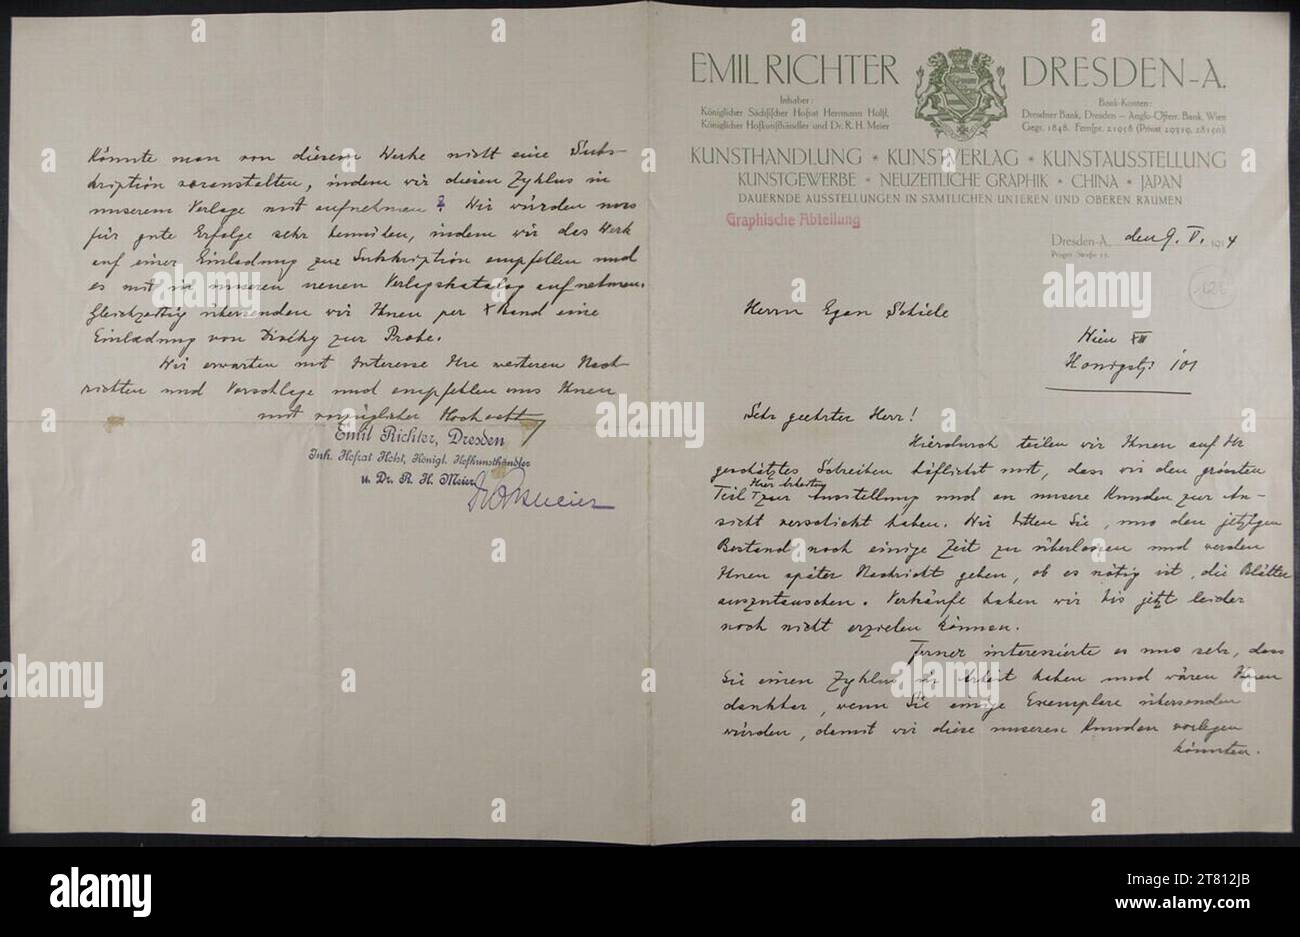 EMIL RICHTER DRESDEN-A.
Inhaber:
Königlicher Sächsischer Hofrat Herrmann Holst,
Königlicher Hofkunsthändler und Dr. R. H. Meier
Bank-Konten:
Dresdner Bank, Dresden – Anglo-Österr. Bank, Wien
Gegr. 1848. Fernspr. 21958 (Privat 29319, 28150).
KUNSTHANDLUNG * KUNSTVERLAG * KUNSTAUSSTELLUNG
KUNSTGEWERBE * NEUZEITLICHE GRAPHIK * CHINA * JAPAN
DAUERNDE AUSSTELLUNGEN IN SÄMTLICHEN UNTEREN UND OBEREN RÄUMEN
Graphische Abteilung
Dresden-A., den 9. V. 1914
Prager Straße 13.
Herrn Egon Schiele
Wien XIII
Hauptstr 101
Sehr geehrter Herr!
Hierdurch teilen wir Ihnen auf Ihr
geschätztes Schreiben höflichst mit, dass wir den grössten
Teil Ihrer Arbeiten zur Ausstellung und an unsere Kunden zur An-
sicht verschickt haben. Wir bitten Sie, uns den jetzigen
Bestand noch einige Zeit zu überlassen und werden
Ihnen später Nachricht geben, ob es nötig ist, die Blätter
auszutauschen. Verkäufe haben wir bis jetzt leider
noch nicht erzielen können.
Ferner interessierte es uns sehr, dass
Sie einen Zyklus in Arbeit haben und wären Ihnen
dankbar, wenn Sie einige Exemplare übersenden
würden, damit wir diese unseren Kunden vorlegen
könnten.
Könnte man von diesem Werke nicht eine Subs-
kription veranstalten, indem wir diesen Zyklus in
unserem Verlage mit aufnehmen? Wir würden uns
für gute Erfolge sehr bemühen, indem wir das Werk
auf einer Einladung zur Subskription empfehlen und
es mit in unseren neuen Verlagskatalog aufnehmen.
Gleichzeitig übersenden wir Ihnen per X Band eine
Einladung von zur Probe.
Wir erwarten mit Interesse Ihre weiteren Nach-
richten und Vorschläge und empfehlen uns Ihnen
mit vorzüglicher Hochacht
Emil Richter, Dresden
Inh. Hofrat Holst, Königl. Hofkunsthändler
u. Dr. R. H. Meier
alamy
Image ID: 2T812JB
www.alamy.com